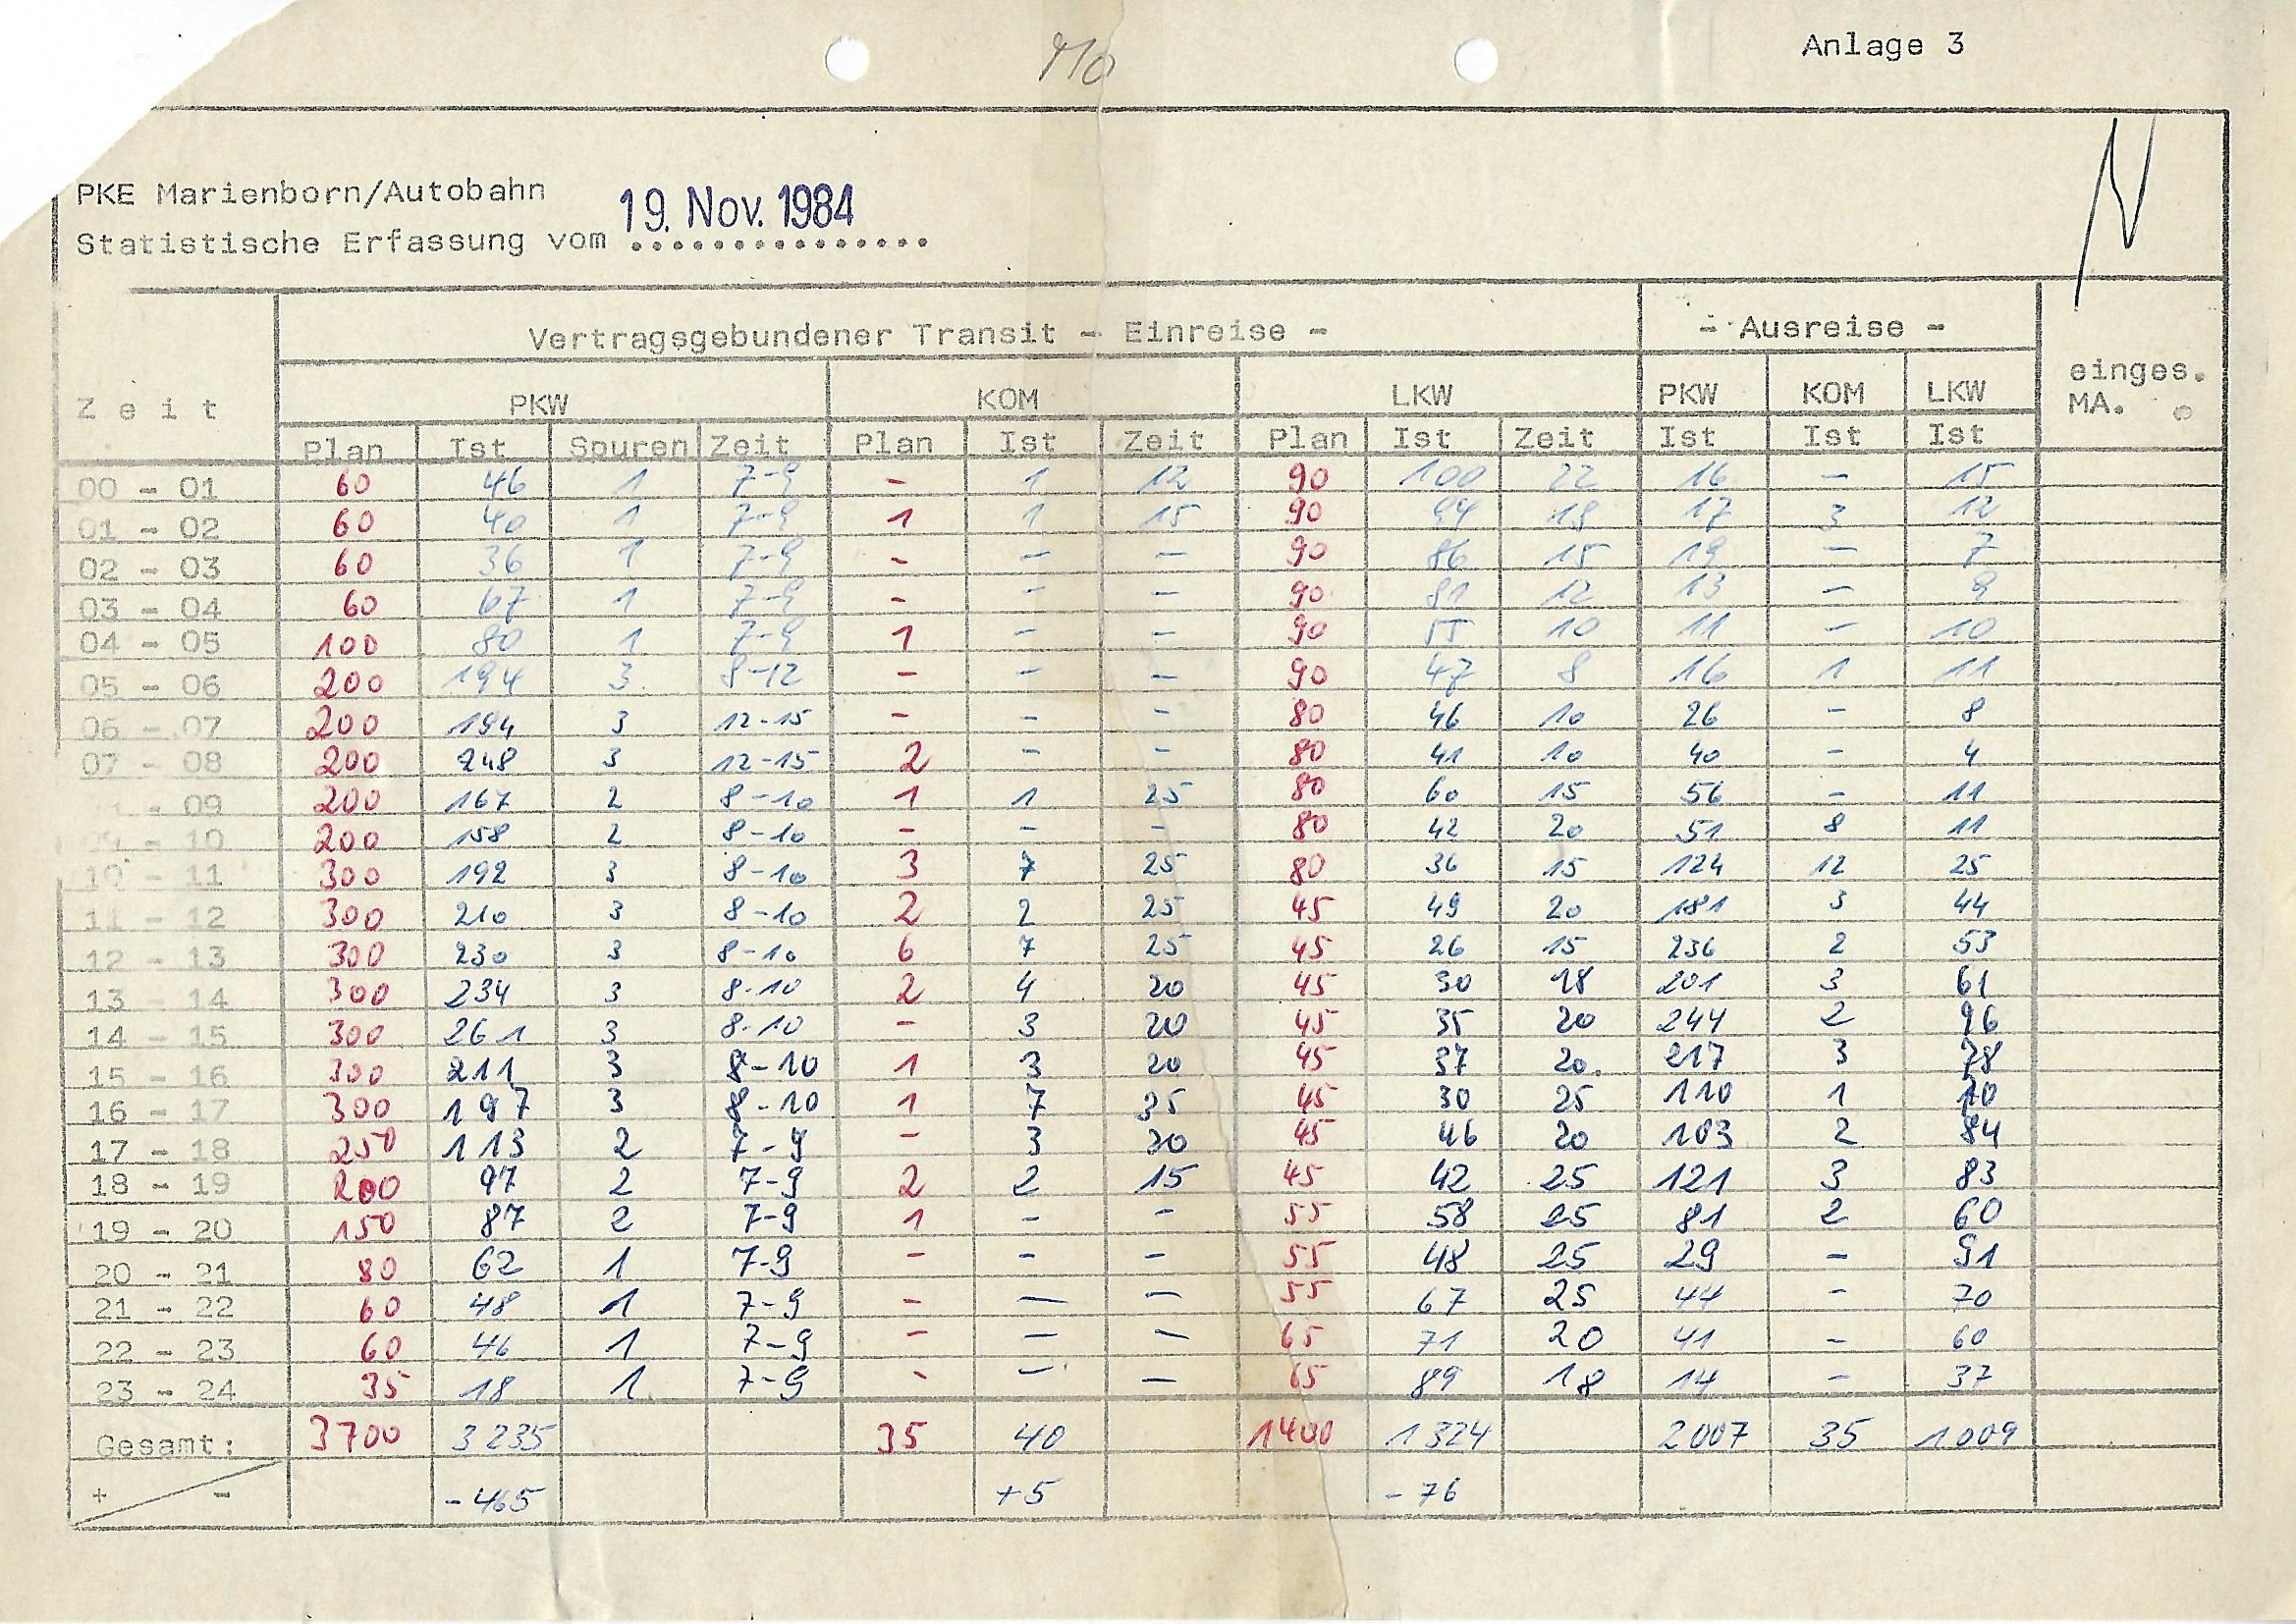 Mo
Anlage 3
PKE Marienborn/Autobahn
19. Nov. 1984
Statistische Erfassung vom ...............
Vertragsgebundener Transit - Einreise - - Ausreise -
Zeit PKW KOM LKW PKW KOM LKW einges. MA.
Plan Ist Spuren Zeit Plan Ist Zeit Plan Ist Zeit Ist Ist Ist
00 - 01 60 46 1 7-9 - 1 12 90 100 22 16 - 15
01 - 02 60 40 1 7-9 1 1 15 90 94 18 17 3 12
02 - 03 60 36 1 7-9 - - - 90 86 15 19 - 7
03 - 04 60 67 1 7-9 - - - 90 81 12 13 - 9
04 - 05 100 80 1 7-9 1 - - 90 55 10 11 - 10
05 - 06 200 194 3 8-12 - - - 90 47 8 16 1 11
06 - 07 200 194 3 12-15 - - - 80 46 10 26 - 8
07 - 08 200 248 3 12-15 2 - - 80 41 10 40 - 4
- 09 200 167 2 8-10 1 1 25 80 60 15 56 - 11
- 10 200 158 2 8-10 - - - 80 42 20 51 8 11
10 - 11 300 192 3 8-10 3 7 25 80 36 15 124 12 25
11 - 12 300 210 3 8-10 2 2 25 45 49 20 181 3 44
12 - 13 300 230 3 8-10 6 7 25 45 26 15 236 2 53
13 - 14 300 234 3 8-10 2 4 20 45 30 18 201 3 61
14 - 15 300 261 3 8-10 - 3 20 45 35 20 244 2 96
15 - 16 300 211 3 8-10 1 3 20 45 37 20. 217 3 78
16 - 17 300 197 3 8-10 1 7 35 45 30 25 110 1 70
17 - 18 250 113 2 7-9 - 3 20 45 46 20 103 2 84
18 - 19 200 97 2 7-9 2 2 15 45 42 25 121 3 83
19 - 20 150 87 2 7-9 1 - - 55 58 25 81 2 60
20 - 21 80 62 1 7-9 - - - 55 48 25 29 - 91
21 - 22 60 48 1 7-9 - - - 55 67 25 44 - 70
22 - 23 60 46 1 7-9 - - - 65 71 20 41 - 60
23 - 24 35 18 1 7-9 - - - 65 89 18 14 - 37
Gesamt: 3700 3235 35 40 1400 1324 2007 35 1009
+ - -465 +5 -76